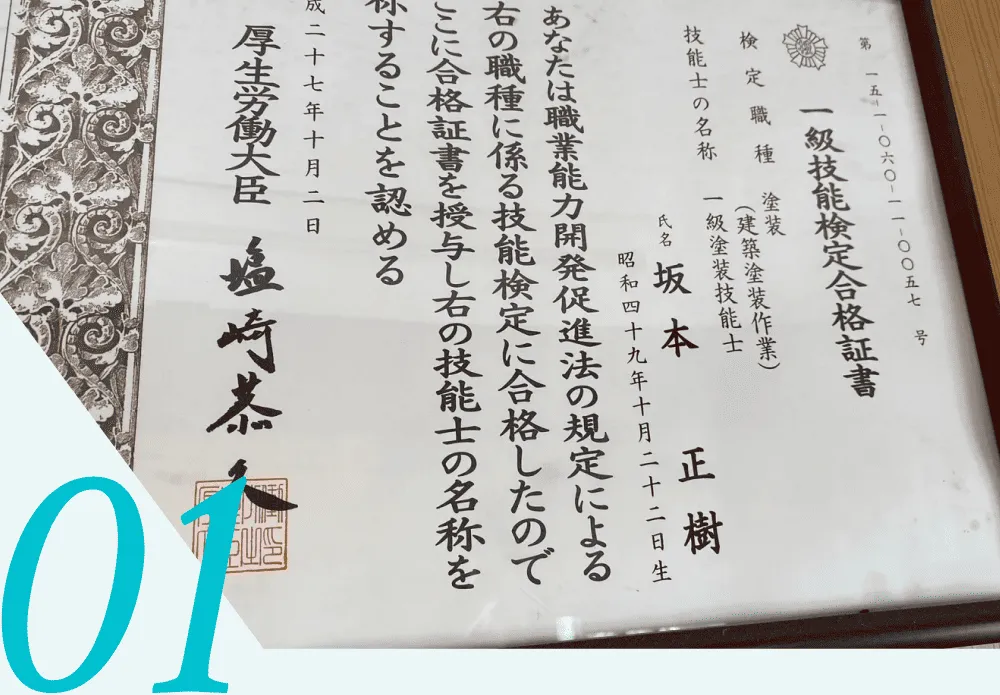 第一五-一-〇六〇-一一-〇〇五七号
一級技能検定合格証書
検定職種 塗装
(建築塗装作業)
技能士の名称 一級塗装技能士
氏名 坂本 正樹
昭和四十九年十月二十二日生
あなたは職業能力開発促進法の規定による
右の職種に係る技能検定に合格したので
ここに合格証書を授与し右の技能士の名称を
称することを認める
成二十七年十月二日
厚生労働大臣 塩崎恭久
01